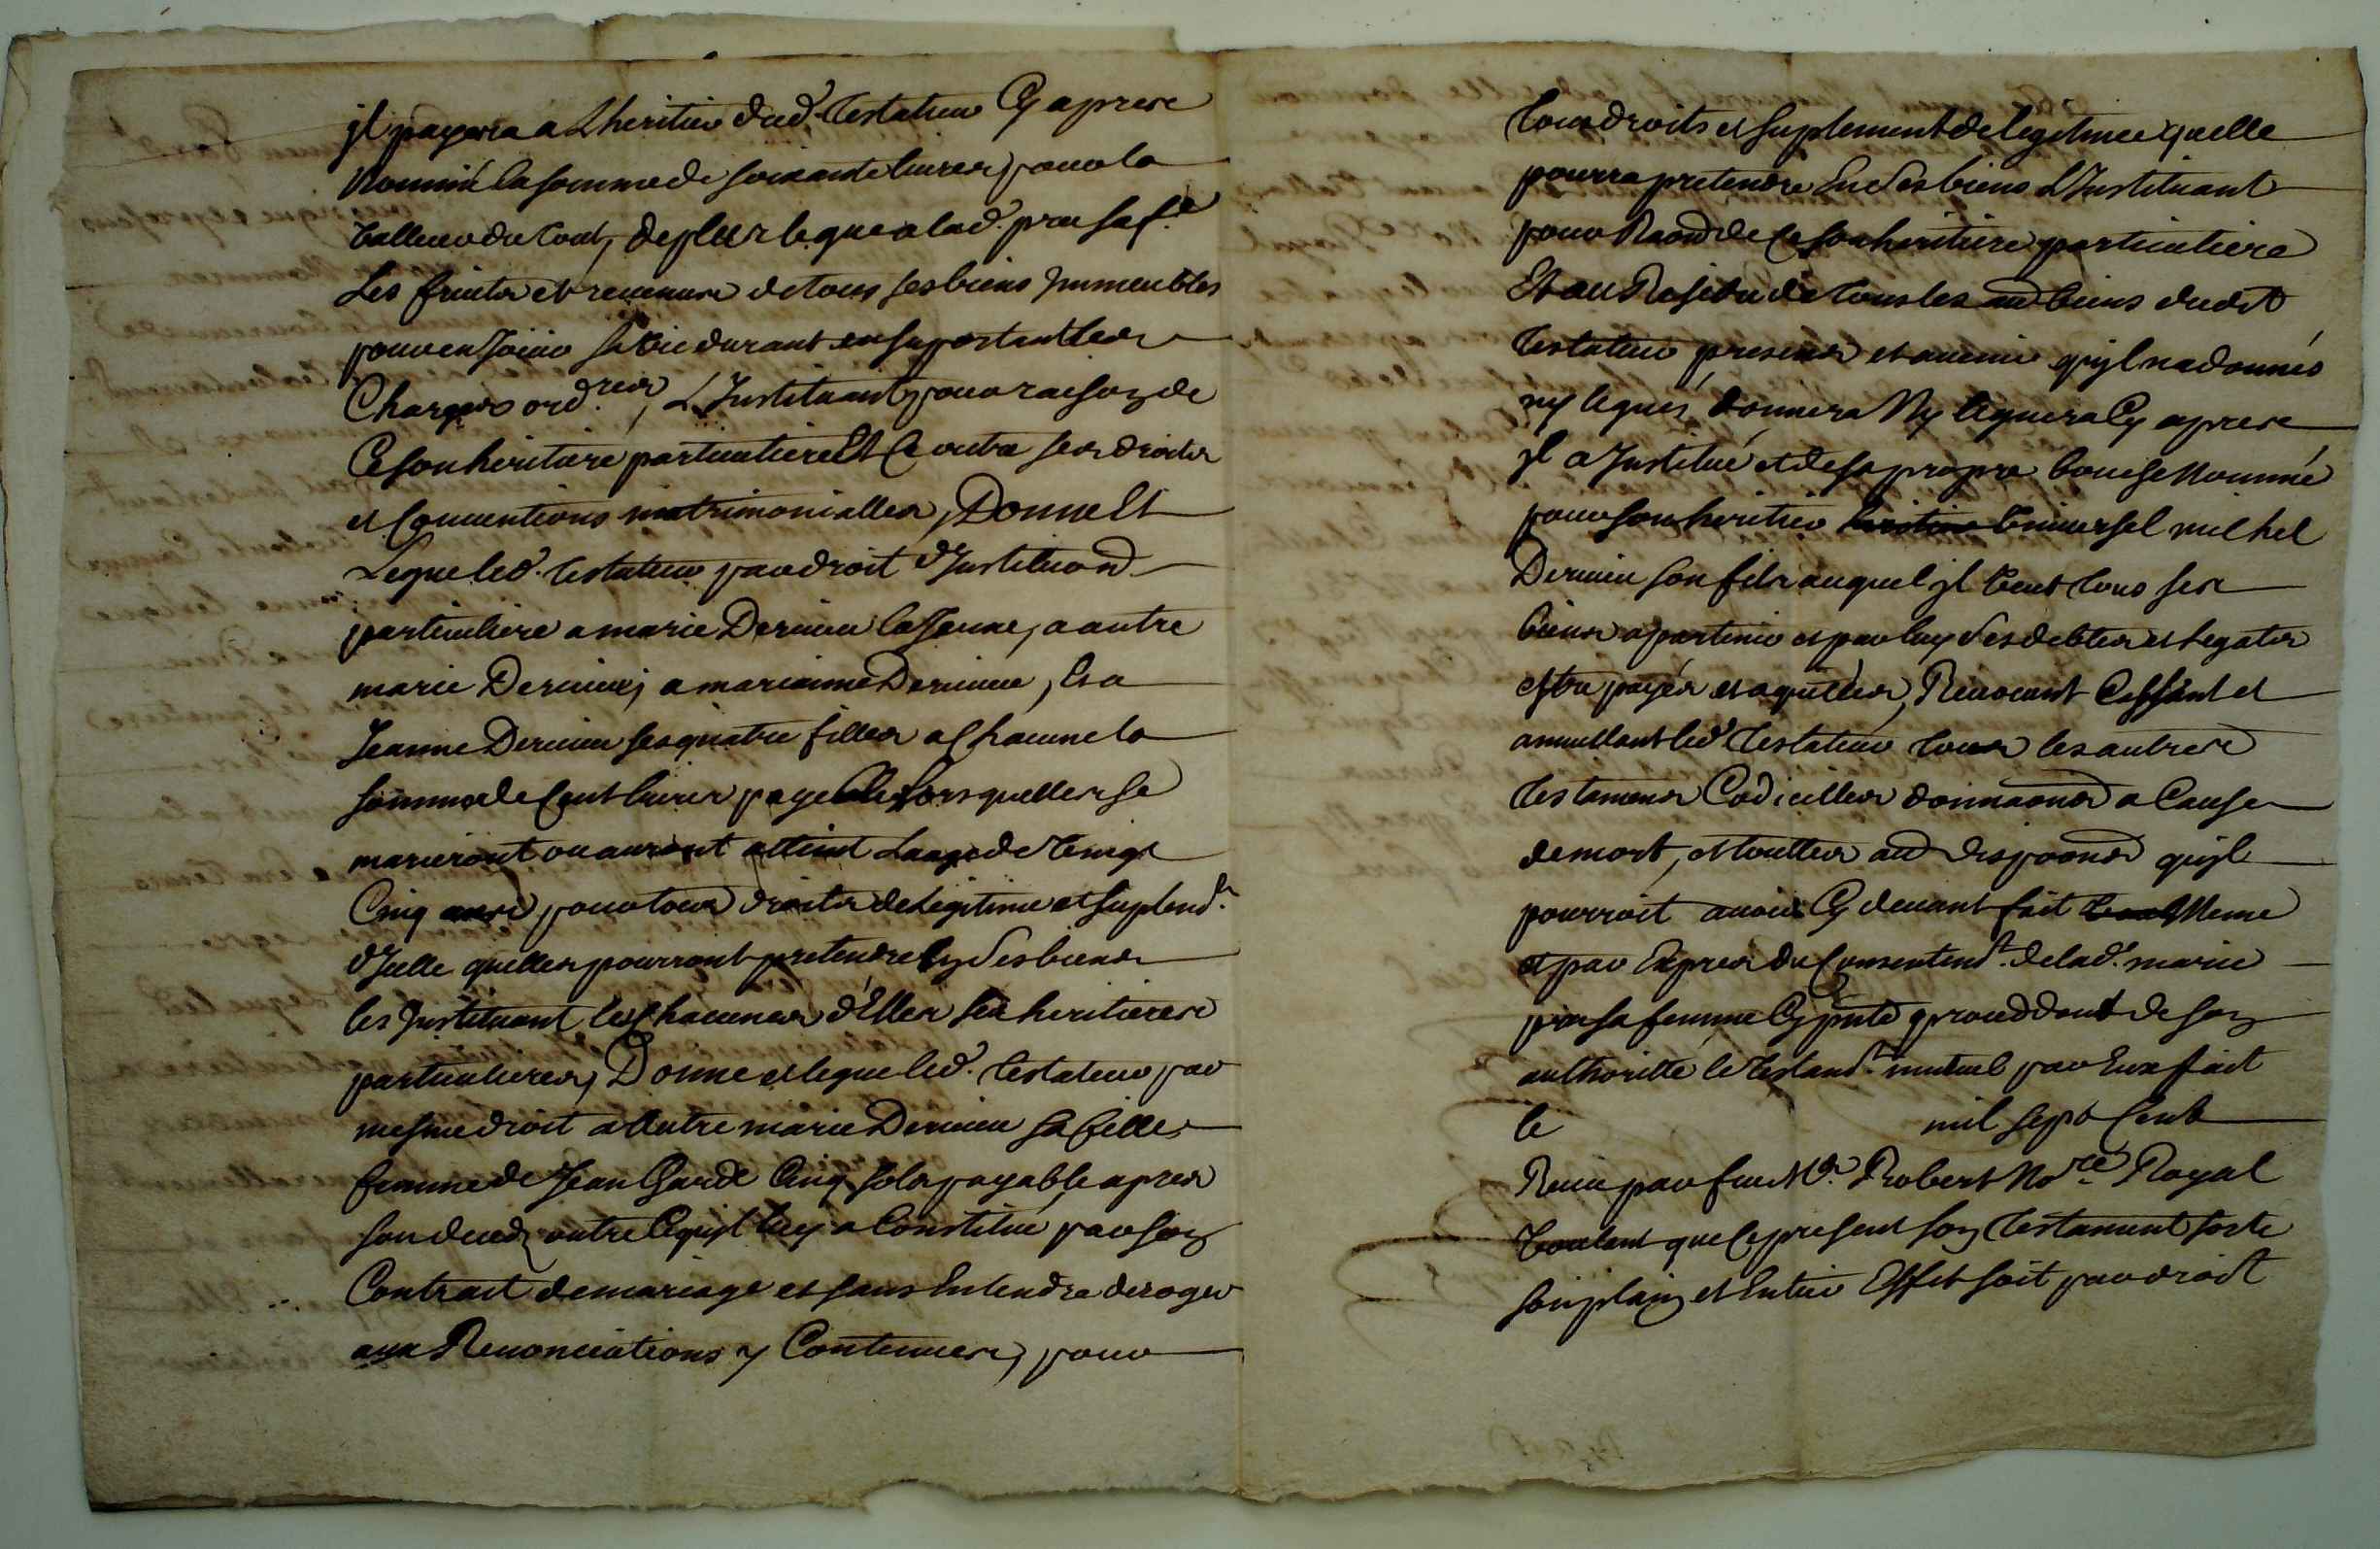 jl payera a Lheritier dud. testateur Cy apres
Nommé la somme de soixante livres pour la
valleur du tout, de plus legue a lad. prou sa f.e
Les fruits et revenus de tous ses biens Jmmeubles
pour en Joüir sa vie durant en suportant les
Charges ord.res, L'Jnstituant pour raison de
Ce son heritiere particuliere Et Ce outre ses droits
et Conventions matrimonialles, Donne Et
Legue led. testateur par droit d'Jnstituaon
particuliere a marie Dernieu la Jeune, a autre
marie Dernieu, a marianne Dernieu, Et a
Jeanne Dernieu ses quatre filles a Chacune la
somme de Cent livres payable lors quelles se
marieront ou auront attint Laage de vingt
Cinq ans pour tous droits de Legitime et suplemd.t
d'Jcelle quelles pourront pretendre Ez Ses biens
les Jnstituant les Chacunes d'Elles ses heritieres
particulieres, Donne et legue led. testateur par
mesme droit a Autre marie Dernieu sa fille
femme de Jean Garde Cinq sols payable apres
son deceds outre Ce qujl luy a Constitué par son
Contract de mariage et sans Entendre deroger
aux Renonciations y Contenues, pour
tous droits et suplement de legitime quelle
pourra pretendre En Ses biens L'Jnstituant
pour Raon de Ce son heritiere particuliere
Et au Residu de tous les au biens dudit
testateur presens et avenir qujl na donnés
ny legués, donnera Ny leguera Cy apres
jl a Jnstitué et de sa propre bouche Nommé
pour son heritier Universel michel
Dernieu son fils auquel jl veut tous ses
biens apartenir et par luy Ses debtes et Legats
estre payés et aquittés, Revocant Cassant et
annullant led. testateur tous les autres
testamens Codicilles donnaons a Cause
de mort, et touttes au disposons qujl
pourroit avoir Cy devant fait Meme
et par Expres du Consentemd.t de lad. marie
prou sa femme Cy pnte proced dont de son
authorite le testamd.t mutuel par Eux fait
le mil sept Cent
Receu par feu M.e Robert No.re Royal
voulant que Ce present son testament sorte
son plain et Entier Effet soit par droit